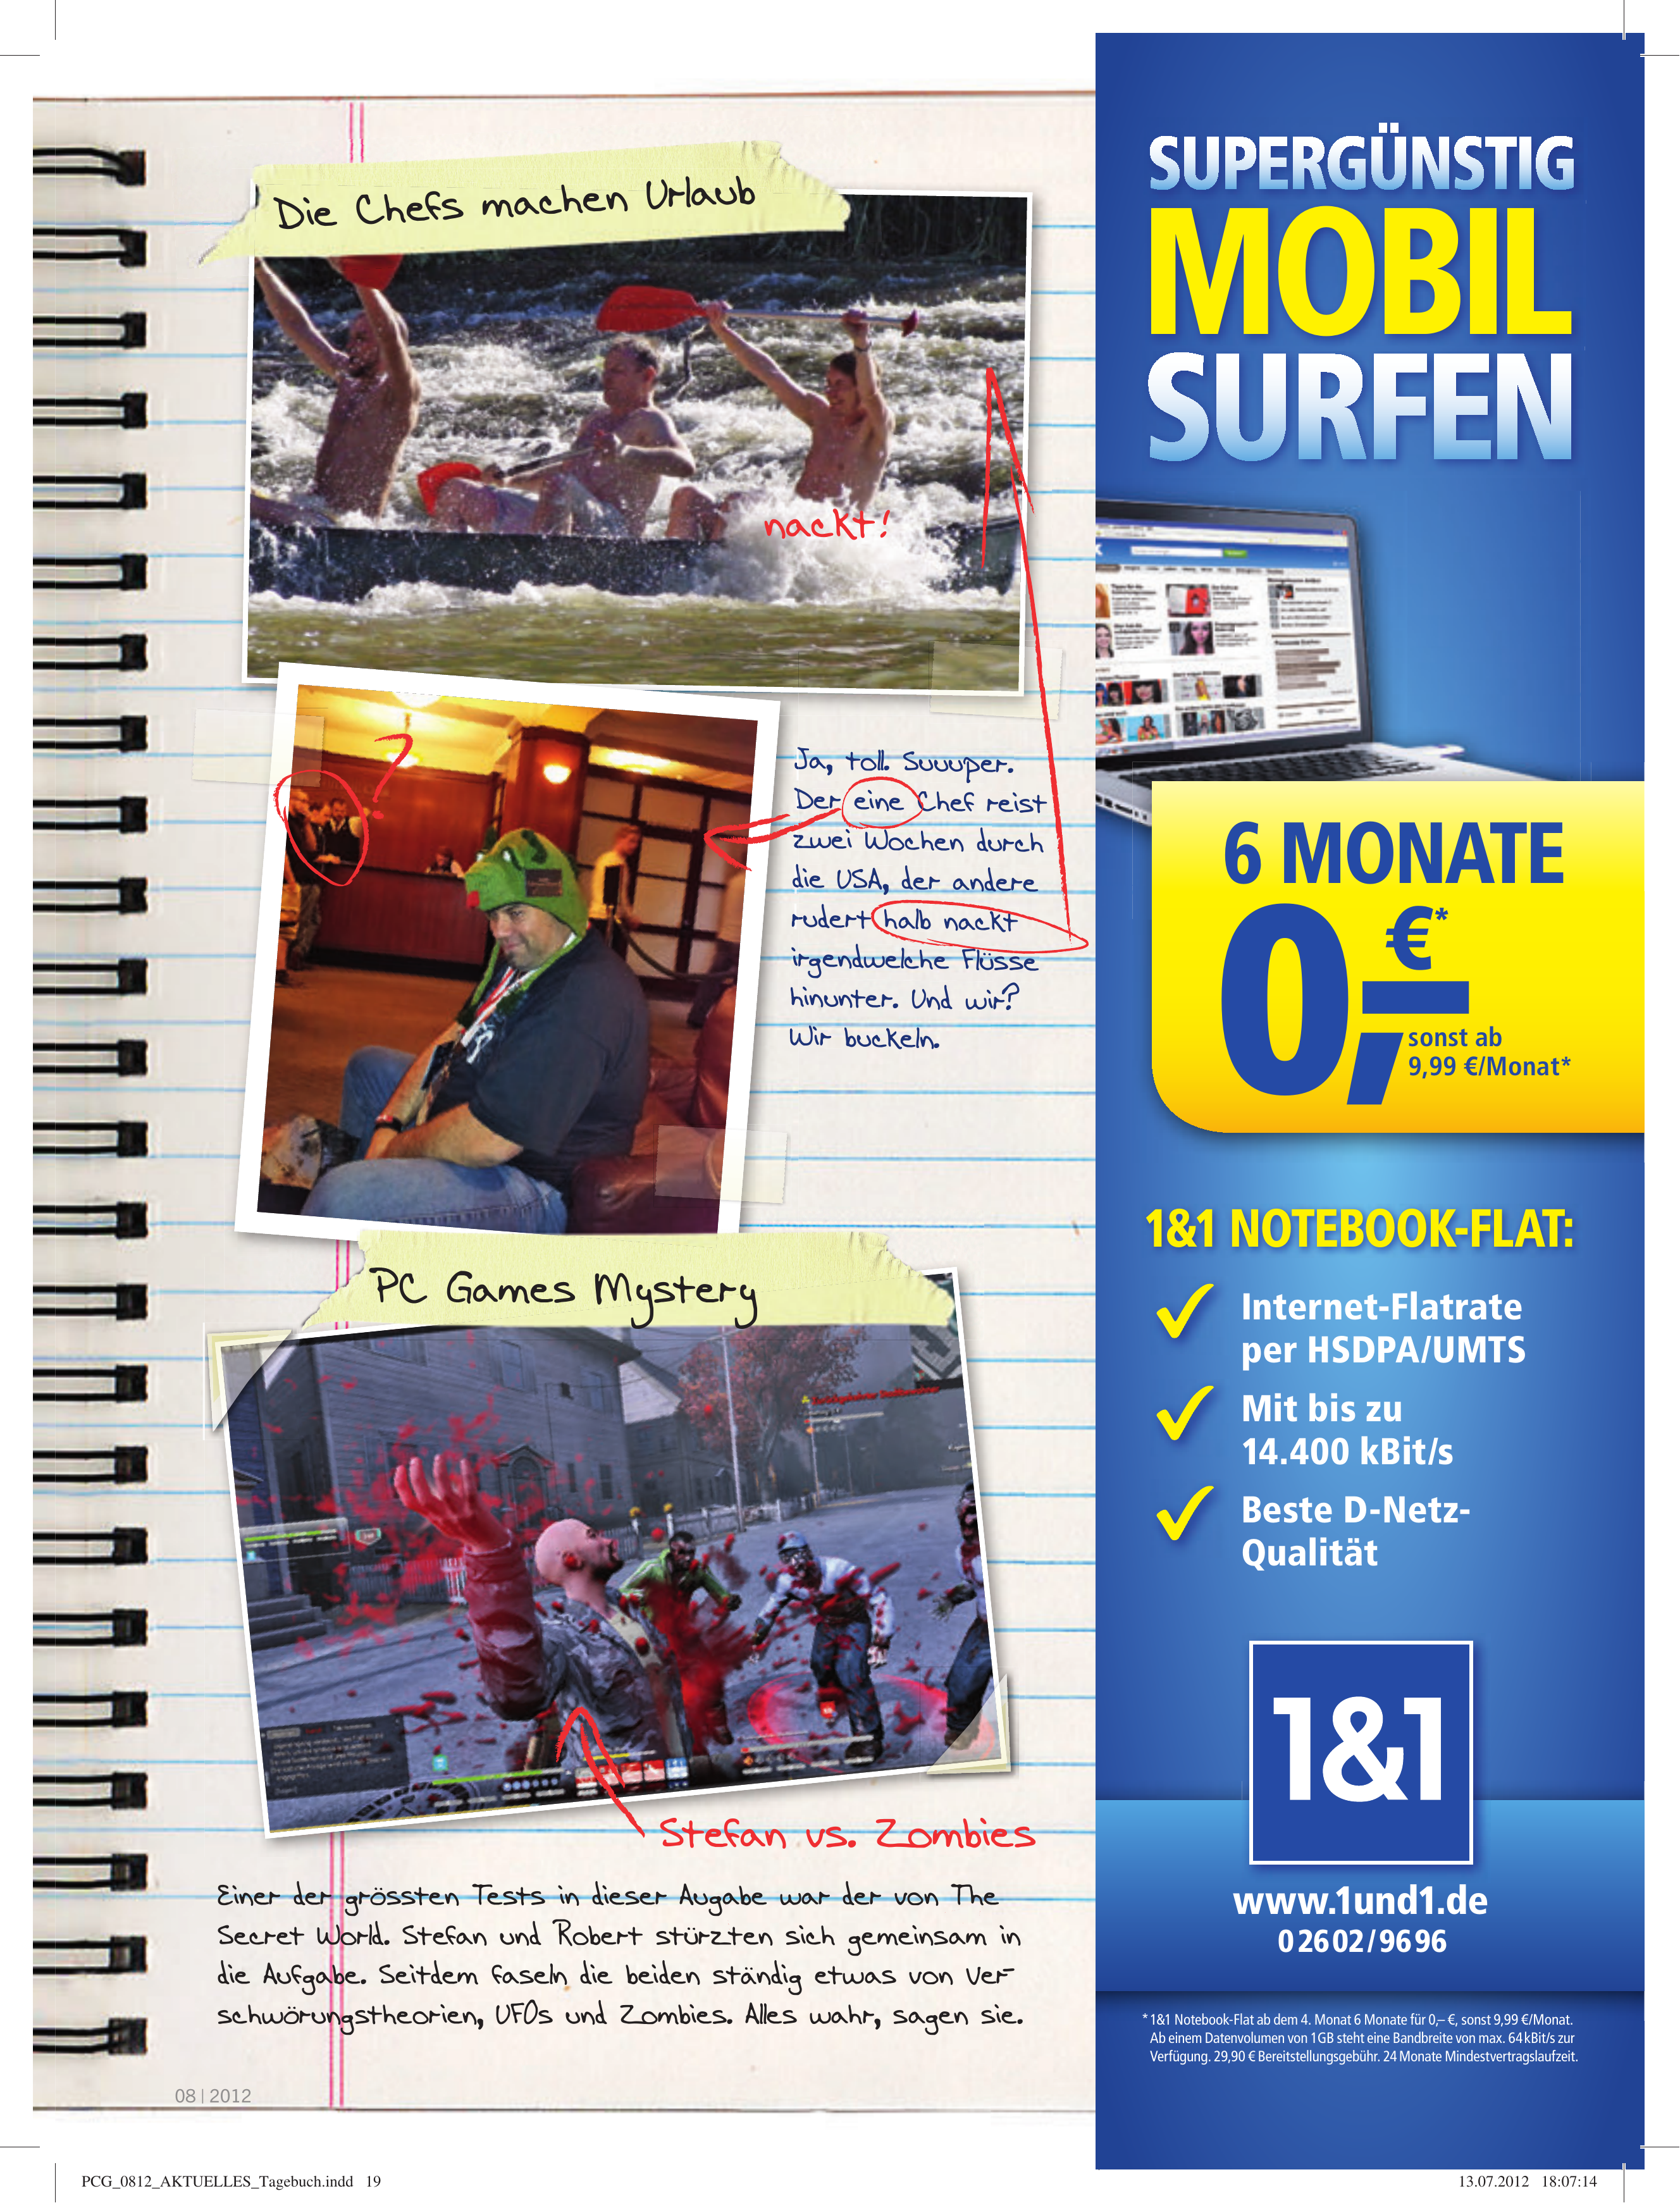 Die Chefs machen Urlaub
nackt!
?
Ja, toll. Suuuper.
Der eine Chef reist
zwei Wochen durch
die USA, der andere
rudert halb nackt
irgendwelche Flüsse
hinunter. Und wir?
Wir buckeln.
PC Games Mystery
Stefan vs. Zombies
Einer der grössten Tests in dieser Augabe war der von The
Secret World. Stefan und Robert stürzten sich gemeinsam in
die Aufgabe. Seitdem faseln die beiden ständig etwas von Ver-
schwörungstheorien, UFOs und Zombies. Alles wahr, sagen sie.
08 | 2012
SUPERGÜNSTIG
MOBIL
SURFEN
6 MONATE
0,– €*
sonst ab
9,99 €/Monat*
1&1 NOTEBOOK-FLAT:
Internet-Flatrate
per HSDPA/UMTS
Mit bis zu
14.400 kBit/s
Beste D-Netz-
Qualität
1&1
www.1und1.de
0 26 02 / 96 96
* 1&1 Notebook-Flat ab dem 4. Monat 6 Monate für 0,– €, sonst 9,99 €/Monat.
Ab einem Datenvolumen von 1 GB steht eine Bandbreite von max. 64 kBit/s zur
Verfügung. 29,90 € Bereitstellungsgebühr. 24 Monate Mindestvertragslaufzeit.
PCG_0812_AKTUELLES_Tagebuch.indd 19
13.07.2012 18:07:14